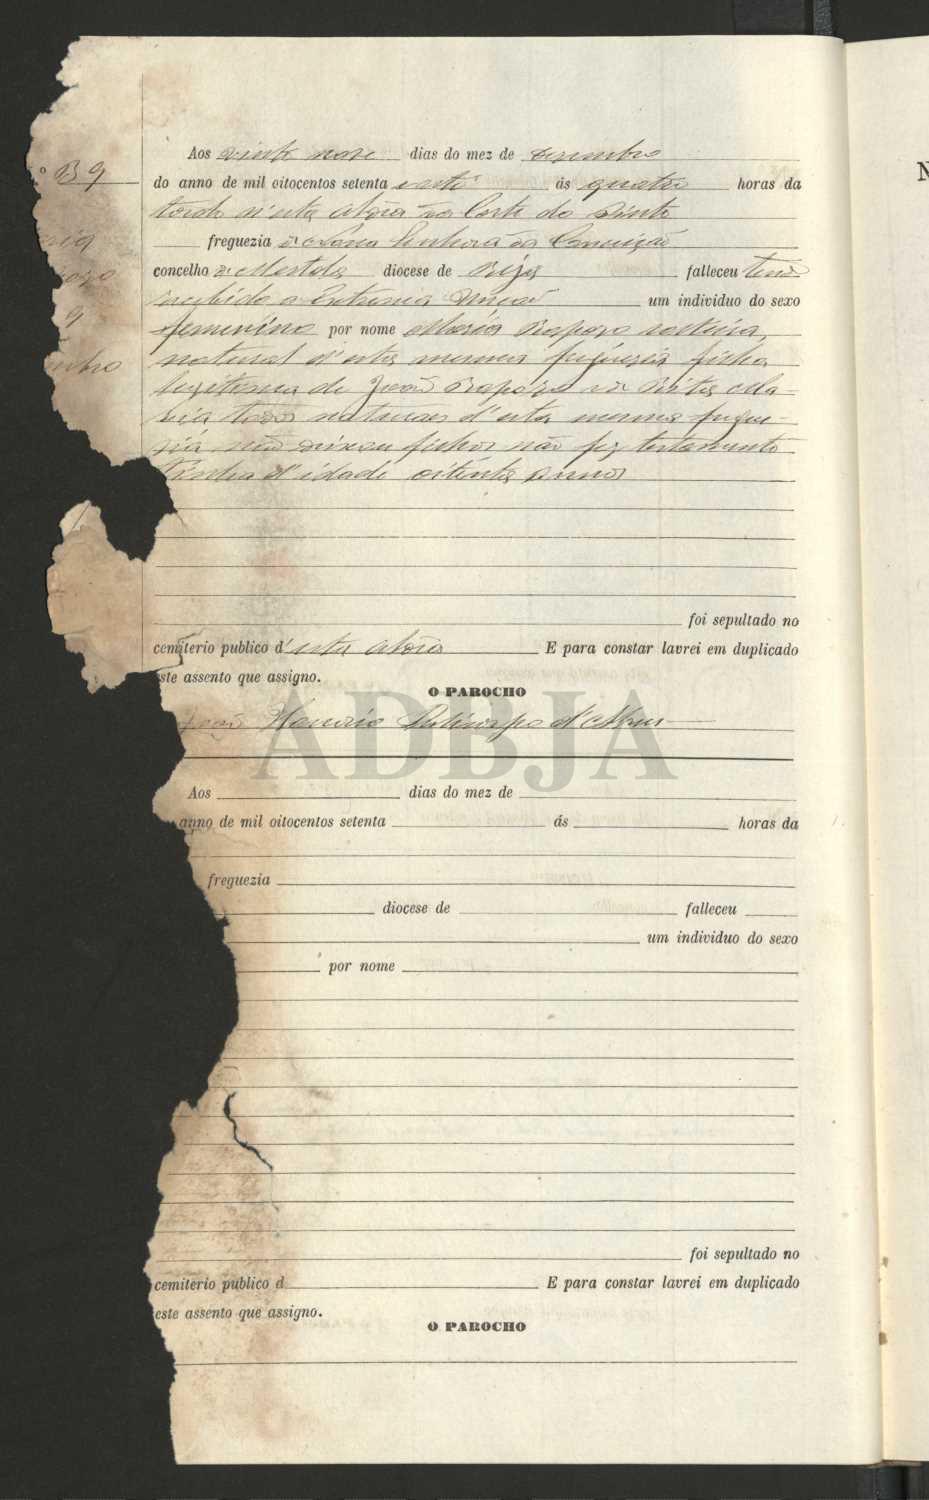 Nº 39
Aos vinte nove dias do mez de dezembro
do anno de mil oitocentos setenta e oito ás quatro horas da
tarde n'esta aldeia da Corte do Pinto
freguezia de Nossa Senhora da Conceição
concelho de Mertola diocese de Beja falleceu tendo
recebido a Extrema Unção um individuo do sexo
femenino por nome Maria Raposo solteira,
natural d'esta mesma freguezia filha
legitima de João Raposo e de Rita Ma-
ria todos naturaes d'esta mesma fregue-
zia não deixou filhos não fez testamento
Tinha d'idade oitenta annos
foi sepultado no
cemiterio publico d'esta aldeia E para constar lavrei em duplicado
este assento que assigno.
O PAROCHO
João Policarpo d'
ADBJA
Aos dias do mez de
anno de mil oitocentos setenta ás horas da
freguezia
diocese de falleceu
um individuo do sexo
por nome
foi sepultado no
cemiterio publico d E para constar lavrei em duplicado
este assento que assigno.
O PAROCHO